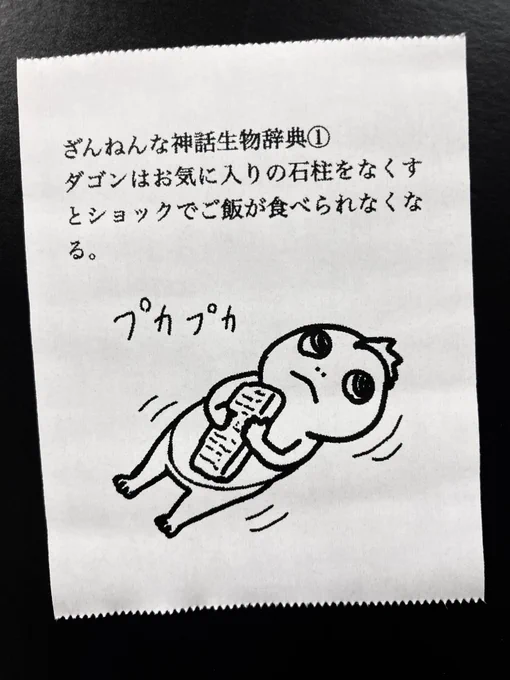 ざんねんな神話生物辞典①
ダゴンはお気に入りの石柱をなくす
とショックでご飯が食べられなくな
る。
プカプカ